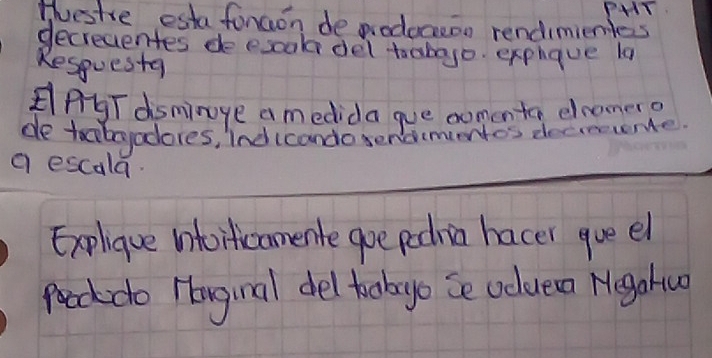 PHT.
Muestre esta función de producción rendimientos
decrecientes de escala del trabajo. explique la
Respuesta
El PMgT disminuye a medida que aumenta el número
de trabajadores, indicando rendimientos decreciente.
a escala.
Explique intuiticamente que podria hacer que el
producto Marginal del trabajo se volviera Negativo